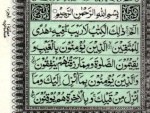 بِسْمِ اللهِ الرَّحْمٰنِ الرَّحِيْمِ
الٓمّٓ ذٰلِكَ الْكِتٰبُ لَا رَيْبَ فِيْهِ هُدًى
لِّلْمُتَّقِيْنَ الَّذِيْنَ يُؤْمِنُوْنَ بِالْغَيْبِ وَ
يُقِيْمُوْنَ الصَّلٰوةَ وَمِمَّا رَزَقْنٰهُمْ يُنْفِقُوْنَ
وَالَّذِيْنَ يُؤْمِنُوْنَ بِمَآ اُنْزِلَ اِلَيْكَ وَمَآ
اُنْزِلَ مِنْ قَبْلِكَ وَبِالْاٰخِرَةِ هُمْ يُوْقِنُوْنَ